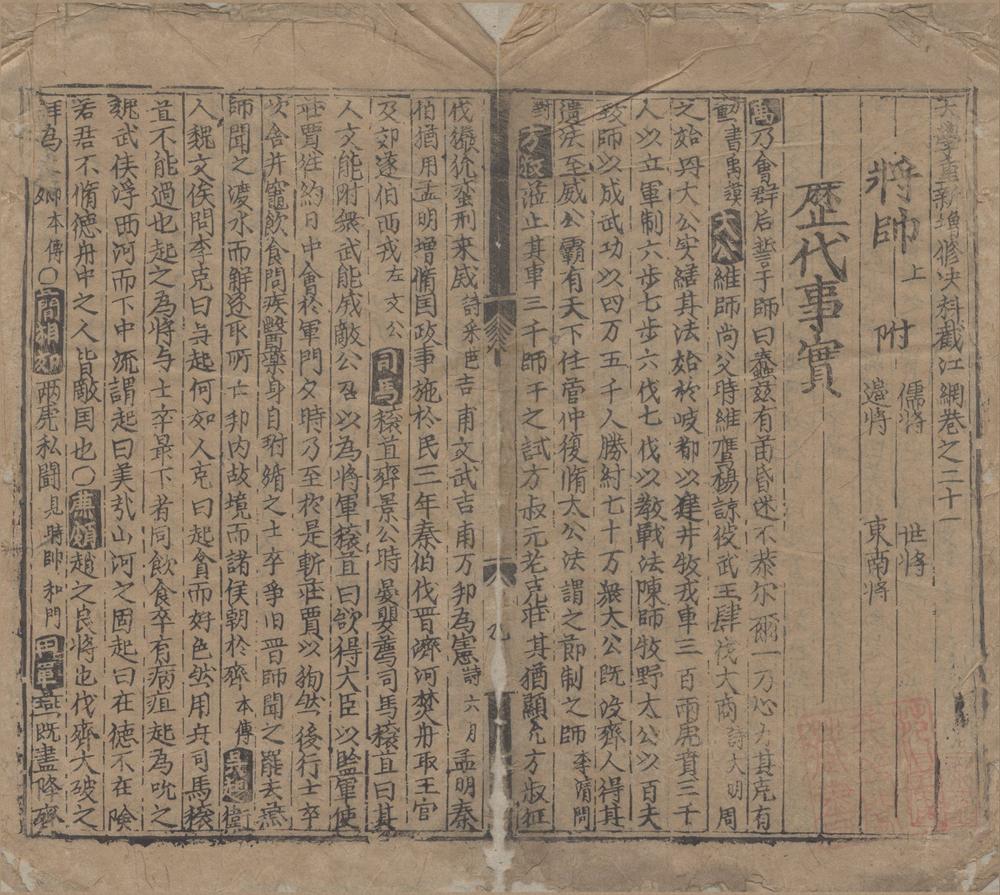 太學重新增修決科截江網卷之二十一
將帥上 附 儒將 世將
邉將 東南將
歷代事實
禹乃會群后誓于師曰蠢茲有苗昏迷不恭尔爾一乃心力其克有
勳書禹謨 太公維師尚父時維鷹揚諒彼武王肆伐大商詩大明周
之始具大公实繕其法始於岐都以建井牧戎車三百兩虎賁三千
人以立軍制六步七步六伐七伐以教戰法陳師牧野太公以百夫
致師以成武功以四万五千人勝紂七十万衆大公既没齊人得其
遺法至威公霸有天下任管仲復脩太公法謂之節制之師李靖問
對 方叔涖止其車三千師干之試方叔元老克壯其猶顯允方叔征
伐玁狁蛮荆来威詩采芑吉甫文武吉甫万邦為憲詩六月孟明秦
伯猶用孟明增脩囯政事施於民三年秦伯伐晋濟河焚舟取王官
及郊遂伯西戎左文公 司馬穰苴齊景公時晏嬰薦司馬穰苴曰其
人文能附衆武能威敵公召以為將軍穰苴曰欲得大臣以監軍使
莊賈往約日中會於軍門夕時乃至於是斬莊賈以徇然後行士卒
次舎井竈飲食問疾醫藥身自拊循之士卒争旧晋師聞之罷去燕
師聞之渡水而解遂取所亡邦内故境而諸侯朝於齊本傳 吳起衛
人魏文侯問李克曰吳起何如人克曰起貪而好色然用兵司馬穰
苴不能過也起之為將与士卒最下者同飲食卒有病疽起為吮之
魏武侯浮西河而下中流謂起曰美哉山河之固起曰在徳不在險
若君不脩德舟中之人皆敵囯也〇廉頗趙之良將也伐齊大破之
拜為上卿本傳〇藺相如兩虎私鬭見時帥和門 田單燕既盡降齊